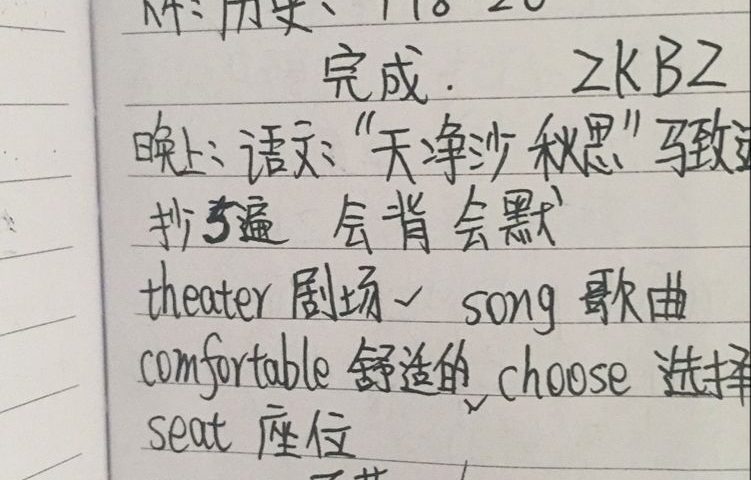 历史、P18-20
完成. ZKBZ
晚上:语文:“天净沙 秋思”马致远
抄5遍 会背 会默
theater 剧场✓ song 歌曲
comfortable 舒适的✓ choose 选择
seat 座位